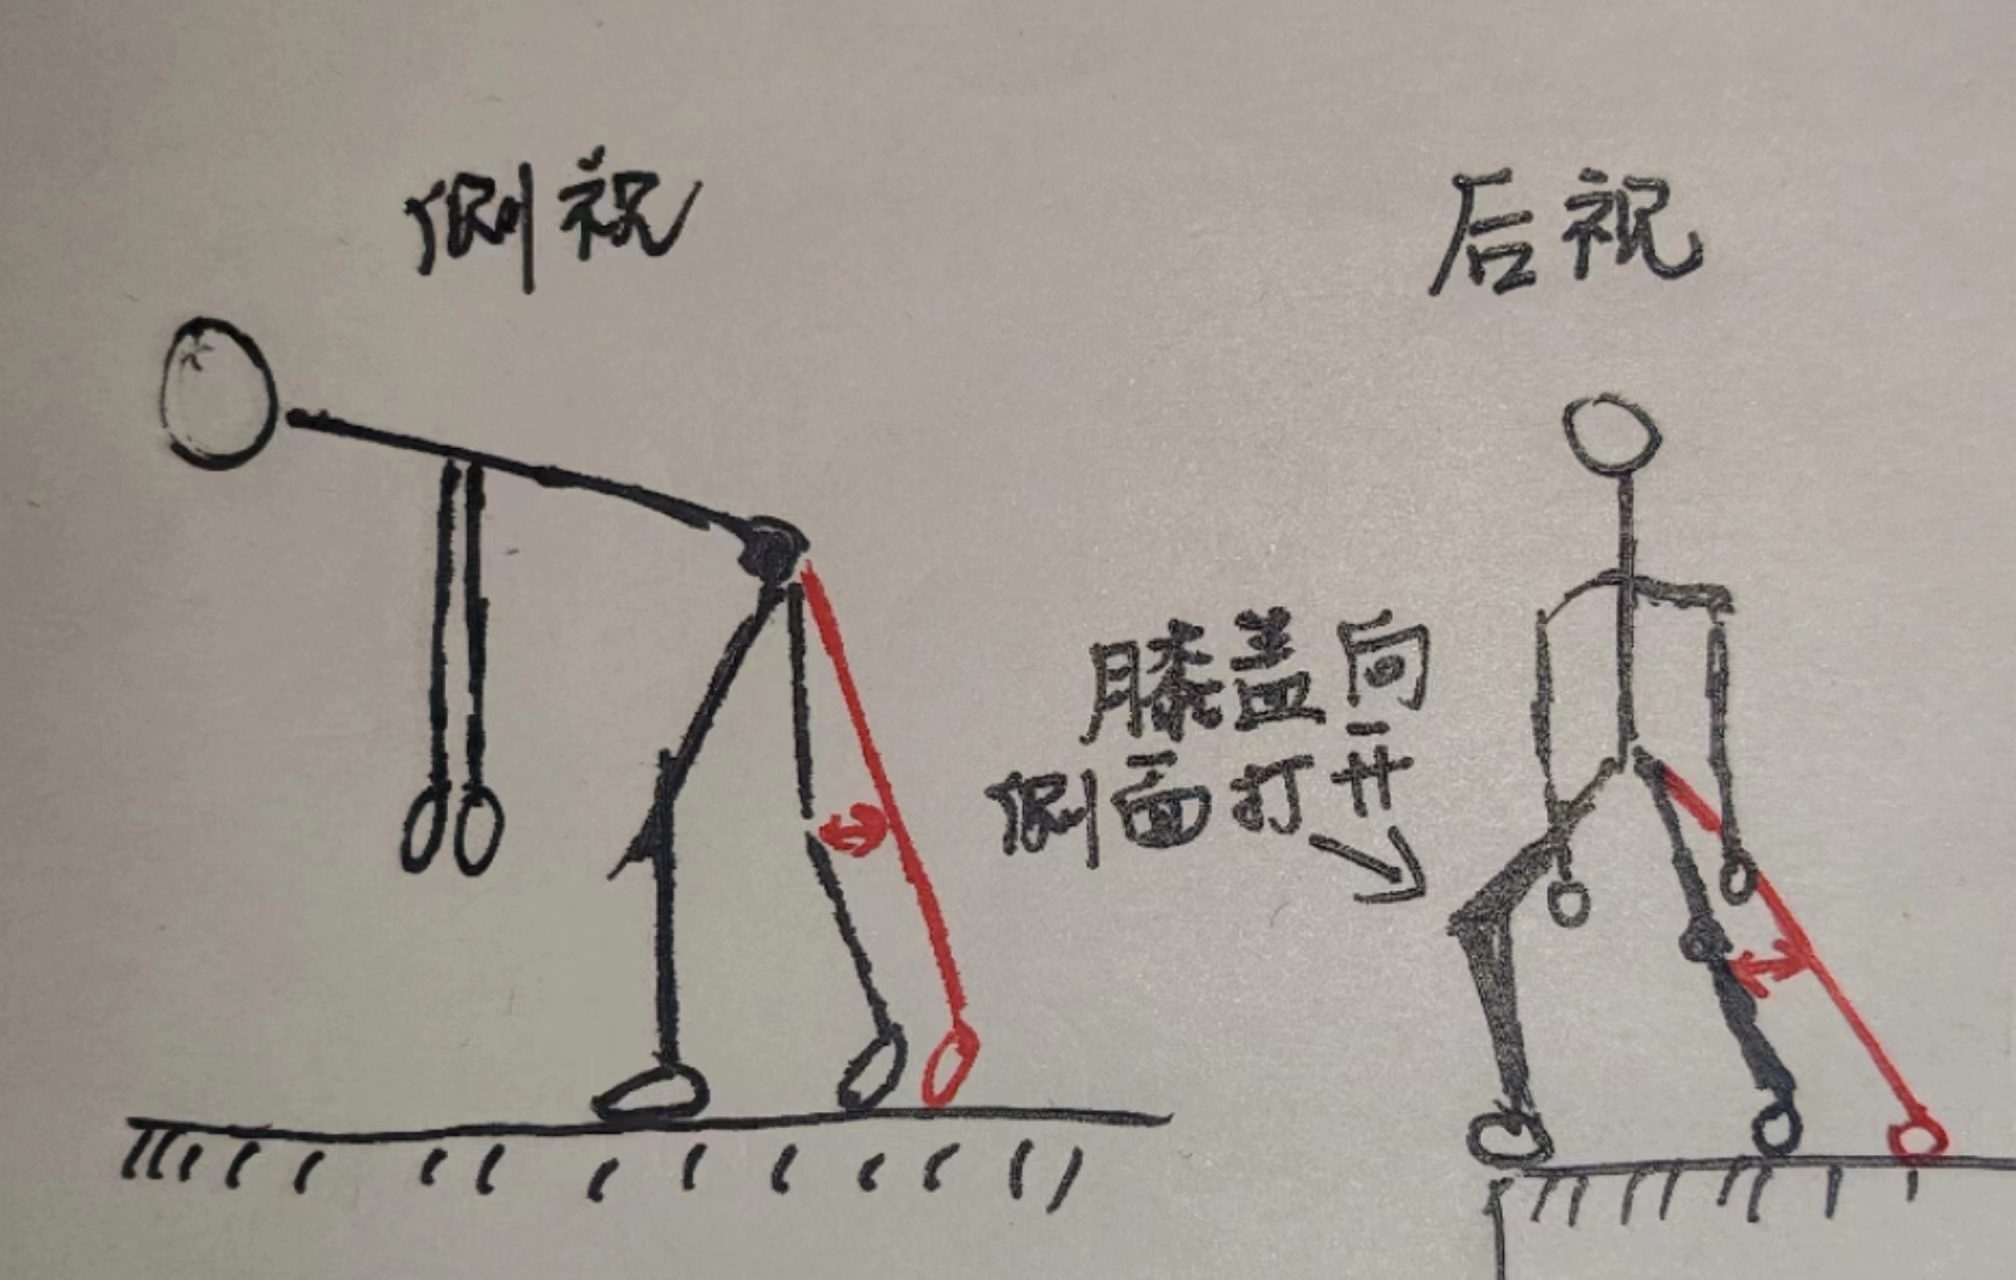 侧视
后视
膝盖向
侧面打开